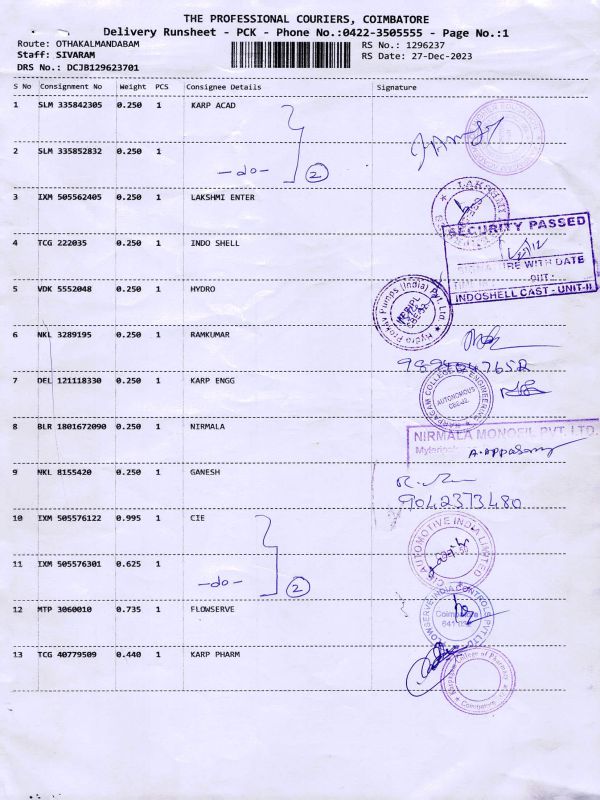 THE PROFESSIONAL COURIERS, COIMBATORE
Delivery Runsheet - PCK - Phone No.:0422-3505555 - Page No.:1
Route: OTHAKALMANDABAM RS No.: 1296237
Staff: SIVARAM RS Date: 27-Dec-2023
DRS No.: DCJB129623701
S No Consignment No Weight PCS Consignee Details Signature
1 SLM 335842305 0.250 1 KARP ACAD
2 SLM 335852832 0.250 1 -do- 2
3 IXM 505562405 0.250 1 LAKSHMI ENTER
SECURITY PASSED
4 TCG 222035 0.250 1 INDO SHELL
SIGNATURE WITH DATE
OUT:
INDOSHELL CAST - UNIT-II
5 VDK 5552048 0.250 1 HYDRO
Hydro Prokav Pumps (India) Pvt. Ltd.
6 NKL 3289195 0.250 1 RAMKUMAR
7 DEL 121118330 0.250 1 KARP ENGG
KARPAGAM COLLEGE OF ENGINEERING
AUTONOMOUS
8 BLR 1801672090 0.250 1 NIRMALA
NIRMALA MONOFIL PVT. LTD.
A.Appasamy
9 NKL 8155420 0.250 1 GANESH
9042373480
10 IXM 505576122 0.995 1 CIE
CIE AUTOMOTIVE INDIA LIMITED
11 IXM 505576301 0.625 1 -do- 2
12 MTP 3060010 0.735 1 FLOWSERVE
FLOWSERVE INDIA CONTROLS PVT LTD
13 TCG 40779509 0.440 1 KARP PHARM
Karpagam College of Pharmacy
Coimbatore